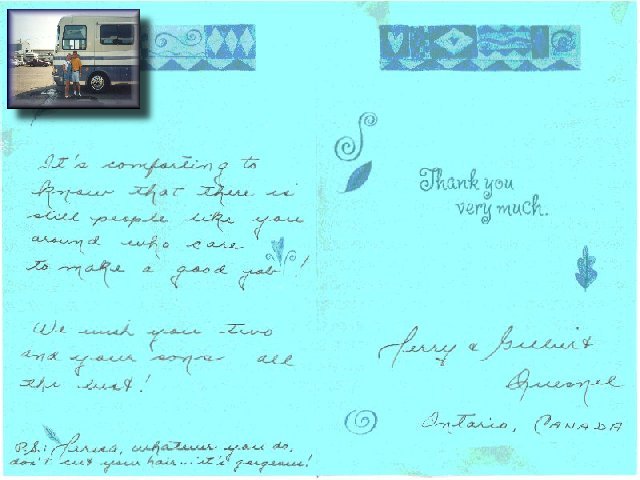 It's comforting to
know that there is
still people like you
around who care
to make a good job!
We wish you two
and your sons all
the best!
P.S: Teresa, whatever you do,
don't cut your hair... it's gorgeous!
Thank you
very much.
Jerry &
Quesnel
Ontario, CANADA